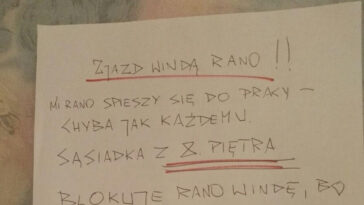 ZJAZD WINDĄ RANO!!
MI RANO SPIESZY SIĘ DO PRACY –
CHYBA JAK KAŻDEMU.
SĄSIADKA Z 8. PIĘTRA
BLOKUJE RANO WINDĘ, BO